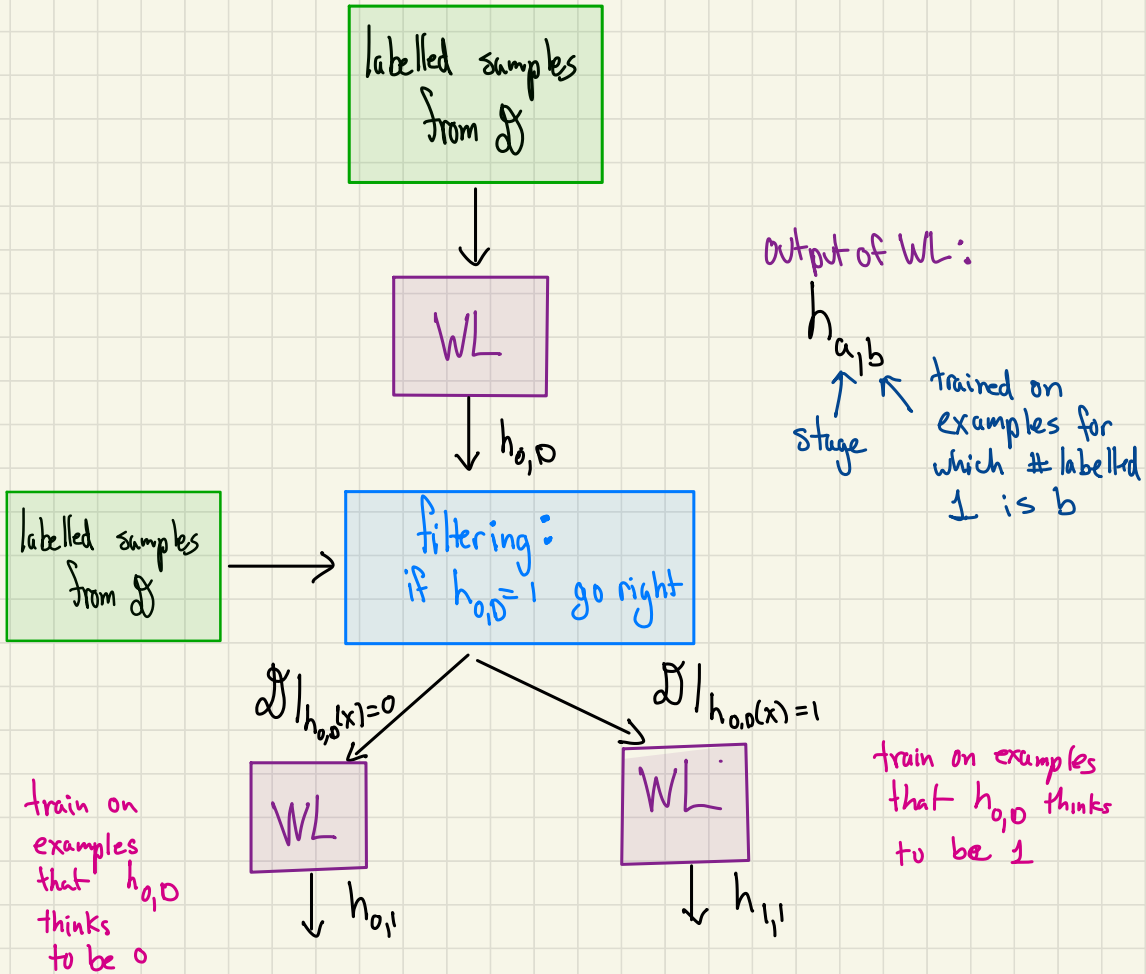 labelled samples
from 𝒟
WL
h₀,₀
output of WL:
hₐ,b
stage
trained on
examples for
which # labelled
1 is b
labelled samples
from 𝒟
filtering:
if h₀,₀=1 go right
𝒟|h₀,₀(x)=0
𝒟|h₀,₀(x)=1
WL
WL
h₀,₁
h₁,₁
train on
examples
that h₀,₀
thinks
to be 0
train on examples
that h₀,₀ thinks
to be 1